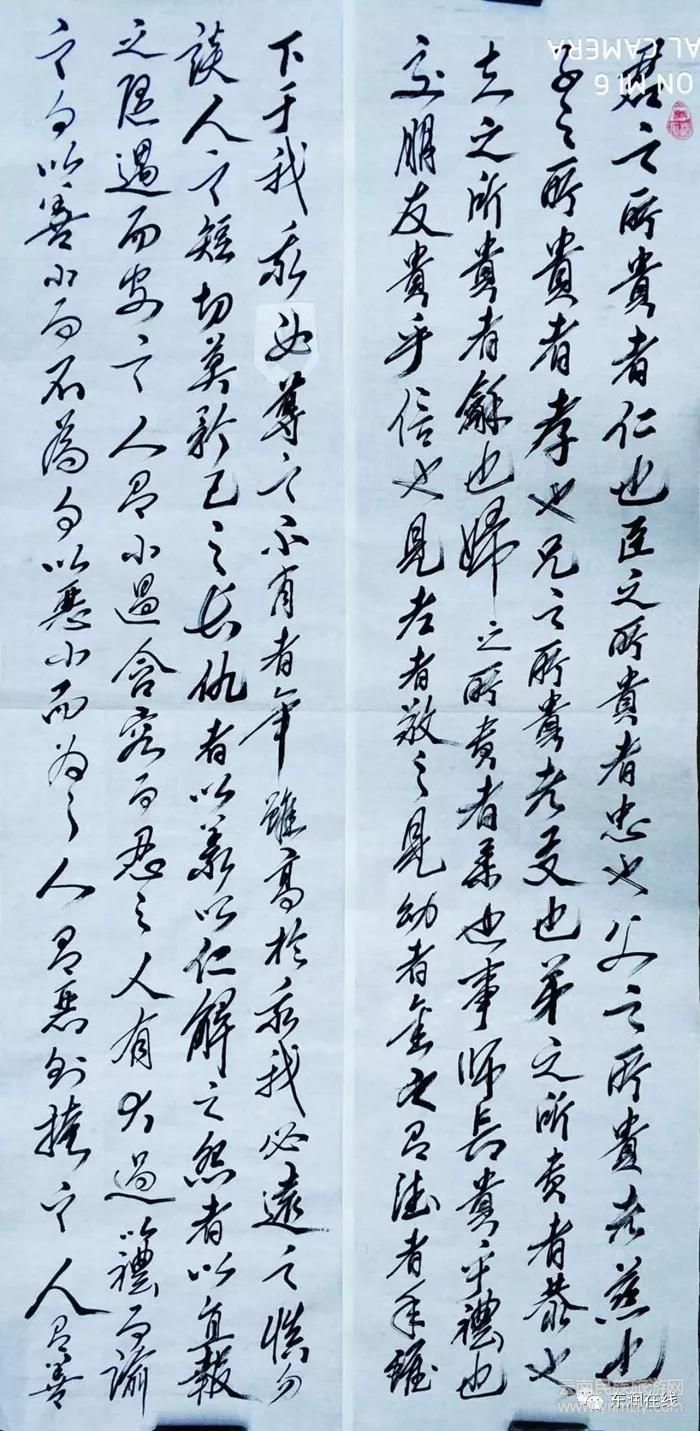 君之所貴者仁也臣之所貴者忠也父之所貴者慈也
子之所貴者孝也兄之所貴者友也弟之所貴者恭也
夫之所貴者龢也婦之所貴者柔也事師長貴乎禮也
交朋友貴乎信也見老者敬之見幼者愛之有德者年雖
下于我我必尊之不肖者年雖高於我我必遠之慎勿
談人之短切莫矜己之長仇者以義以仁解之怨者以直報
之隨遇而安之人有小過含容而忍之人有大過以禮而諭
之勿以善小而不為勿以惡小而為之人有惡則掩之人有善
ON MI 6
AL CAMERA
云南民族旅游网
东润在线